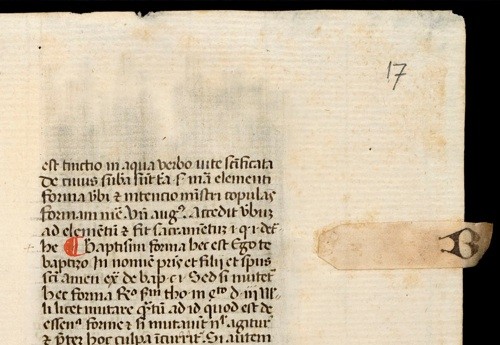 17
est tinctio in aqua verbo uite sc̃ificata
De cuius sub̃a sũt t̃a s. mã elementi
forma v̄bi & intencio mĩstri copulãs
formam mẽ Vñ augꝰ. Accedit v̄buʒ
ad elemẽtũ & fit sacr̃amẽtuʒ i. q. i. det̃
he ¶ Baptismi forma hec est Ego te
B
baptizo In nomĩe pr̃is et filij et sp̃us
sc̃i amen ex̃ de bap. c. i. Sed si mutet̃
hec forma
li licet mutare q̃tũ ad id quod est de
essenᵃ forme & si mutauit nᵒ agitur
& p̃ter hoc culpa ĩcurrit. Si autem